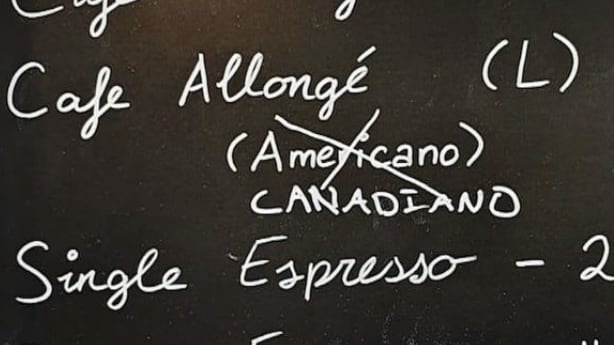 Cafe Allongé (L)
(Americano)
CANADIANO
Single Espresso - 2